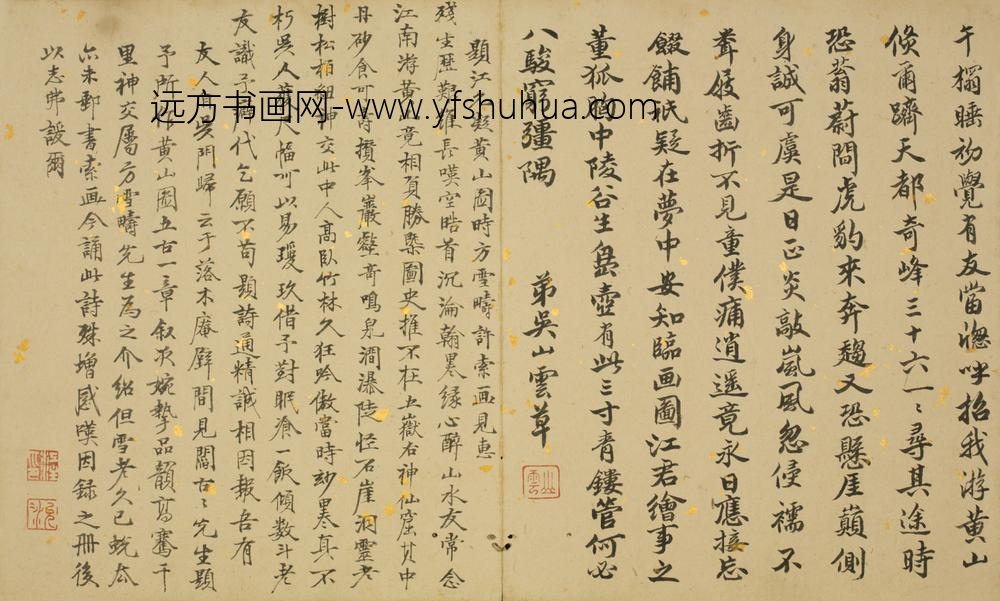 午榻睡初覺有友當窓呼招我游黃山
倏爾躋天都奇峰三十六一ミ尋其途時
恐蓊蔚間虎豹來奔趨又恐懸厓巔側
身誠可虞是日正炎敲嵐風忽侵襦不
覺屐齒折不見童僕痡逍遥竟永日應接忘
餟餔祇疑在夢中安知臨画圖江君繪事之
董狐胸中陵谷生盎壺有此三寸青鏤管何必
八駿窮彊隅
弟吳山雲草
題江允凝黃山圖時方雪疇許索画見惠
殘生歷難難長嘆空晧首沉淪翰墨緣心醉山水友常念
江南游黃山竟相負勝槩圖史推不在五嶽右神仙窟其中
丹砂食可壽攢峯巖壑奇鳴泉澗瀑陡怪石崖洞靈老
樹松栢細神交此中人高臥竹林久狂吟傲當時玅墨真不
朽吳人尺幅可以易瓊玖借予對眠飡一飯傾數斗老
友識予代乞願不苟題詩通精誠相因報吾有
友人吳門歸云于落木庵壁間見閻古ミ先生題
予所作黃山圖五古一章叙次婉摯品韻高騫千
里神交屬方雪疇先生爲之介紹但雪老久已蛻太
古未郵書索画今誦此詩殊增感嘆因録之冊後
以志弗諼爾
远方书画网-www.yfshuhua.com